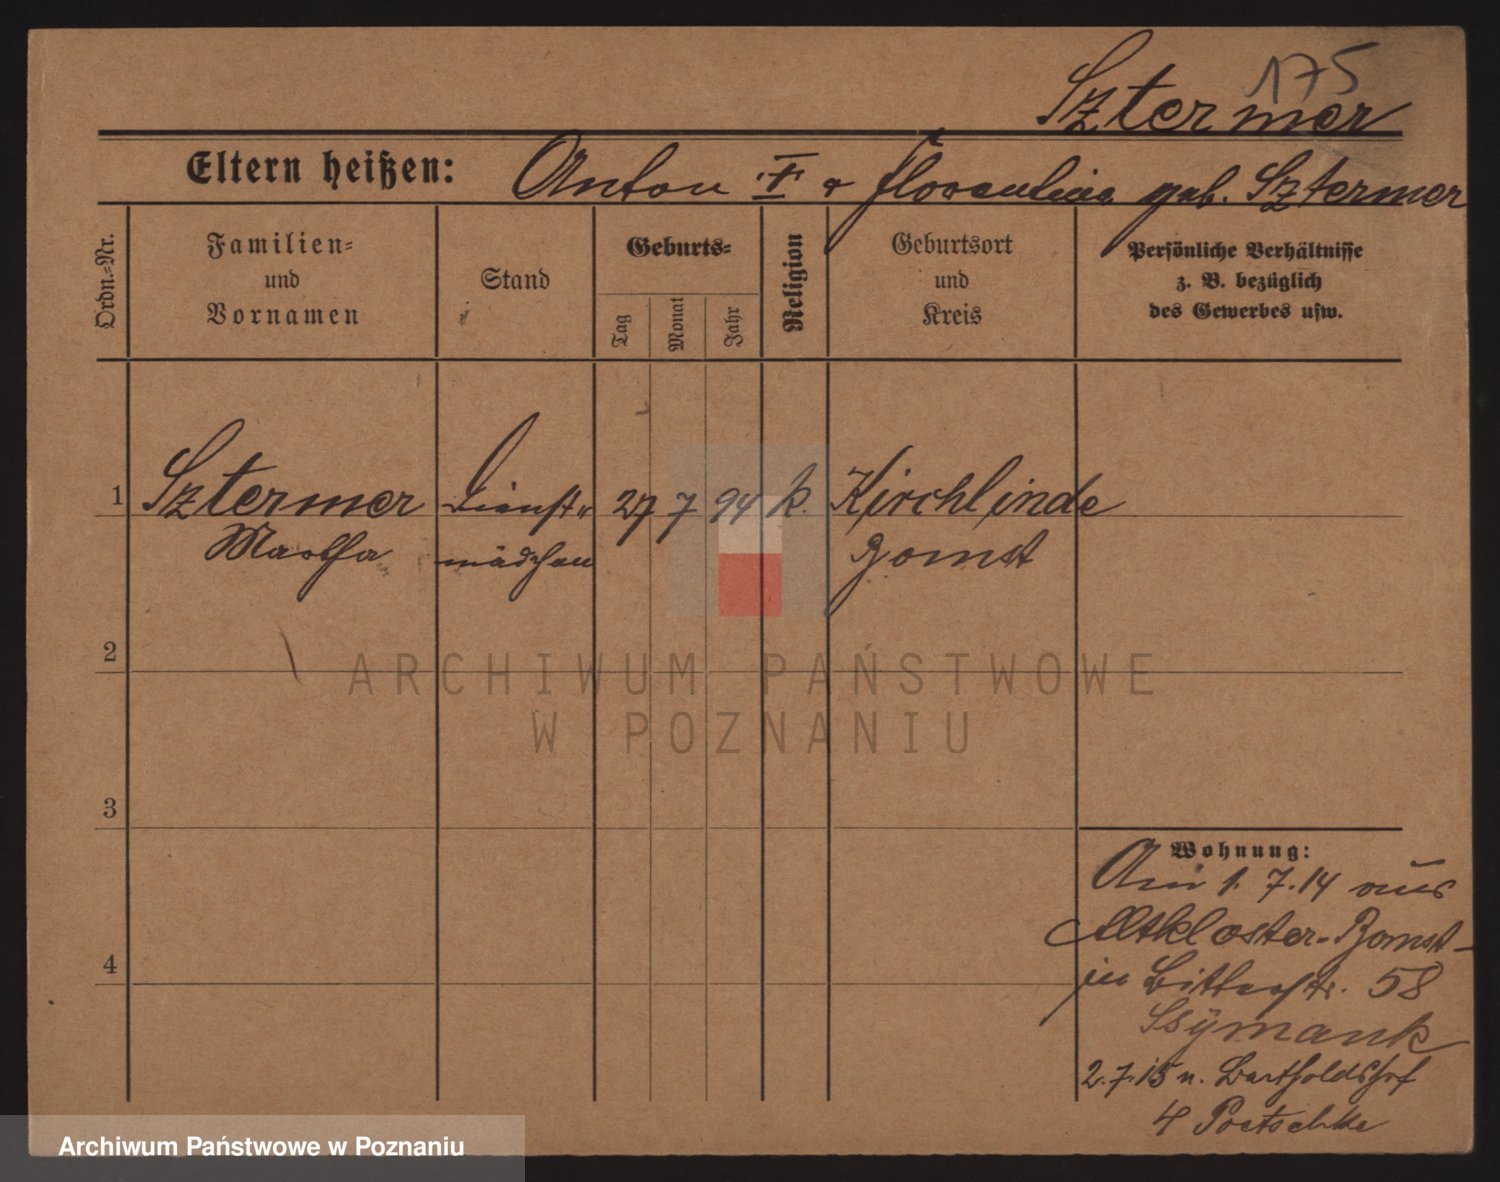 175
Sztermer
Eltern heißen: Anton I. u Florentine geb. Sztermer
Ordn.=Nr.
Familien=
und
Vornamen
Stand
Geburts=
Tag
Monat
Jahr
Religion
Geburtsort
und
Kreis
Persönliche Verhältnisse
z. B. bezüglich
des Gewerbes usw.
1 Sztermer Dienst= 27 7 94 k. Kirchlinde
Martha mädchen Bomst
2
3
4
Wohnung:
Am 1. 7. 14 aus
Altkloster-Bomst-
in Bitterstr. 58
Ssymank
2.7.15 n. Bartholdshof
4 Poetschke
ARCHIWUM PAŃSTWOWE
W POZNANIU
Archiwum Państwowe w Poznaniu